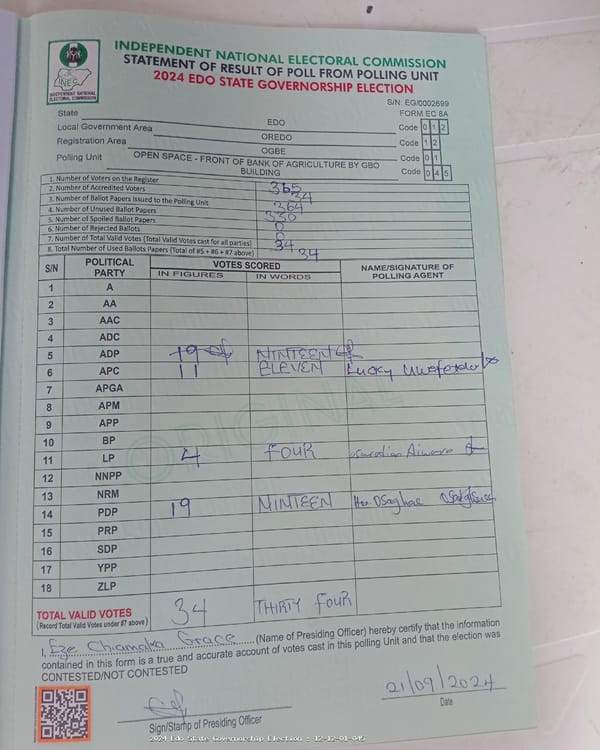 INDEPENDENT NATIONAL ELECTORAL COMMISSION
STATEMENT OF RESULT OF POLL FROM POLLING UNIT
2024 EDO STATE GOVERNORSHIP ELECTION
INEC
INDEPENDENT NATIONAL ELECTORAL COMMISSION
S/N: EG/0002699
FORM EC 8A
State EDO Code 0 1 2
Local Government Area OREDO Code 1 2
Registration Area OGBE Code 0 1
Polling Unit OPEN SPACE - FRONT OF BANK OF AGRICULTURE BY GBO BUILDING Code 0 4 5
1. Number of Voters on the Register 365
2. Number of Accredited Voters 34
3. Number of Ballot Papers Issued to the Polling Unit 364
4. Number of Unused Ballot Papers 330
5. Number of Spoiled Ballot Papers 0
6. Number of Rejected Ballots 0
7. Number of Total Valid Votes (Total Valid Votes cast for all parties) 34
8. Total Number of Used Ballots Papers (Total of #5 + #6 + #7 above) 34
S/N POLITICAL PARTY VOTES SCORED NAME/SIGNATURE OF POLLING AGENT
IN FIGURES IN WORDS
1 A
2 AA
3 AAC
4 ADC
5 ADP 19 NINTEEN
6 APC 11 ELEVEN Lucky
7 APGA
8 APM
9 APP
10 BP
11 LP 4 FOUR
12 NNPP
13 NRM
14 PDP 19 NINTEEN Osaghae
15 PRP
16 SDP
17 YPP
18 ZLP
ORIGINAL
TOTAL VALID VOTES 34 THIRTY FOUR
(Record Total Valid Votes under #7 above)
I, Eze Chiamaka Grace (Name of Presiding Officer) hereby certify that the information
contained in this form is a true and accurate account of votes cast in this polling Unit and that the election was
CONTESTED/NOT CONTESTED
21/09/2024
Sign/Stamp of Presiding Officer Date
2024 Edo State Governorship Election : 12-12-01-045